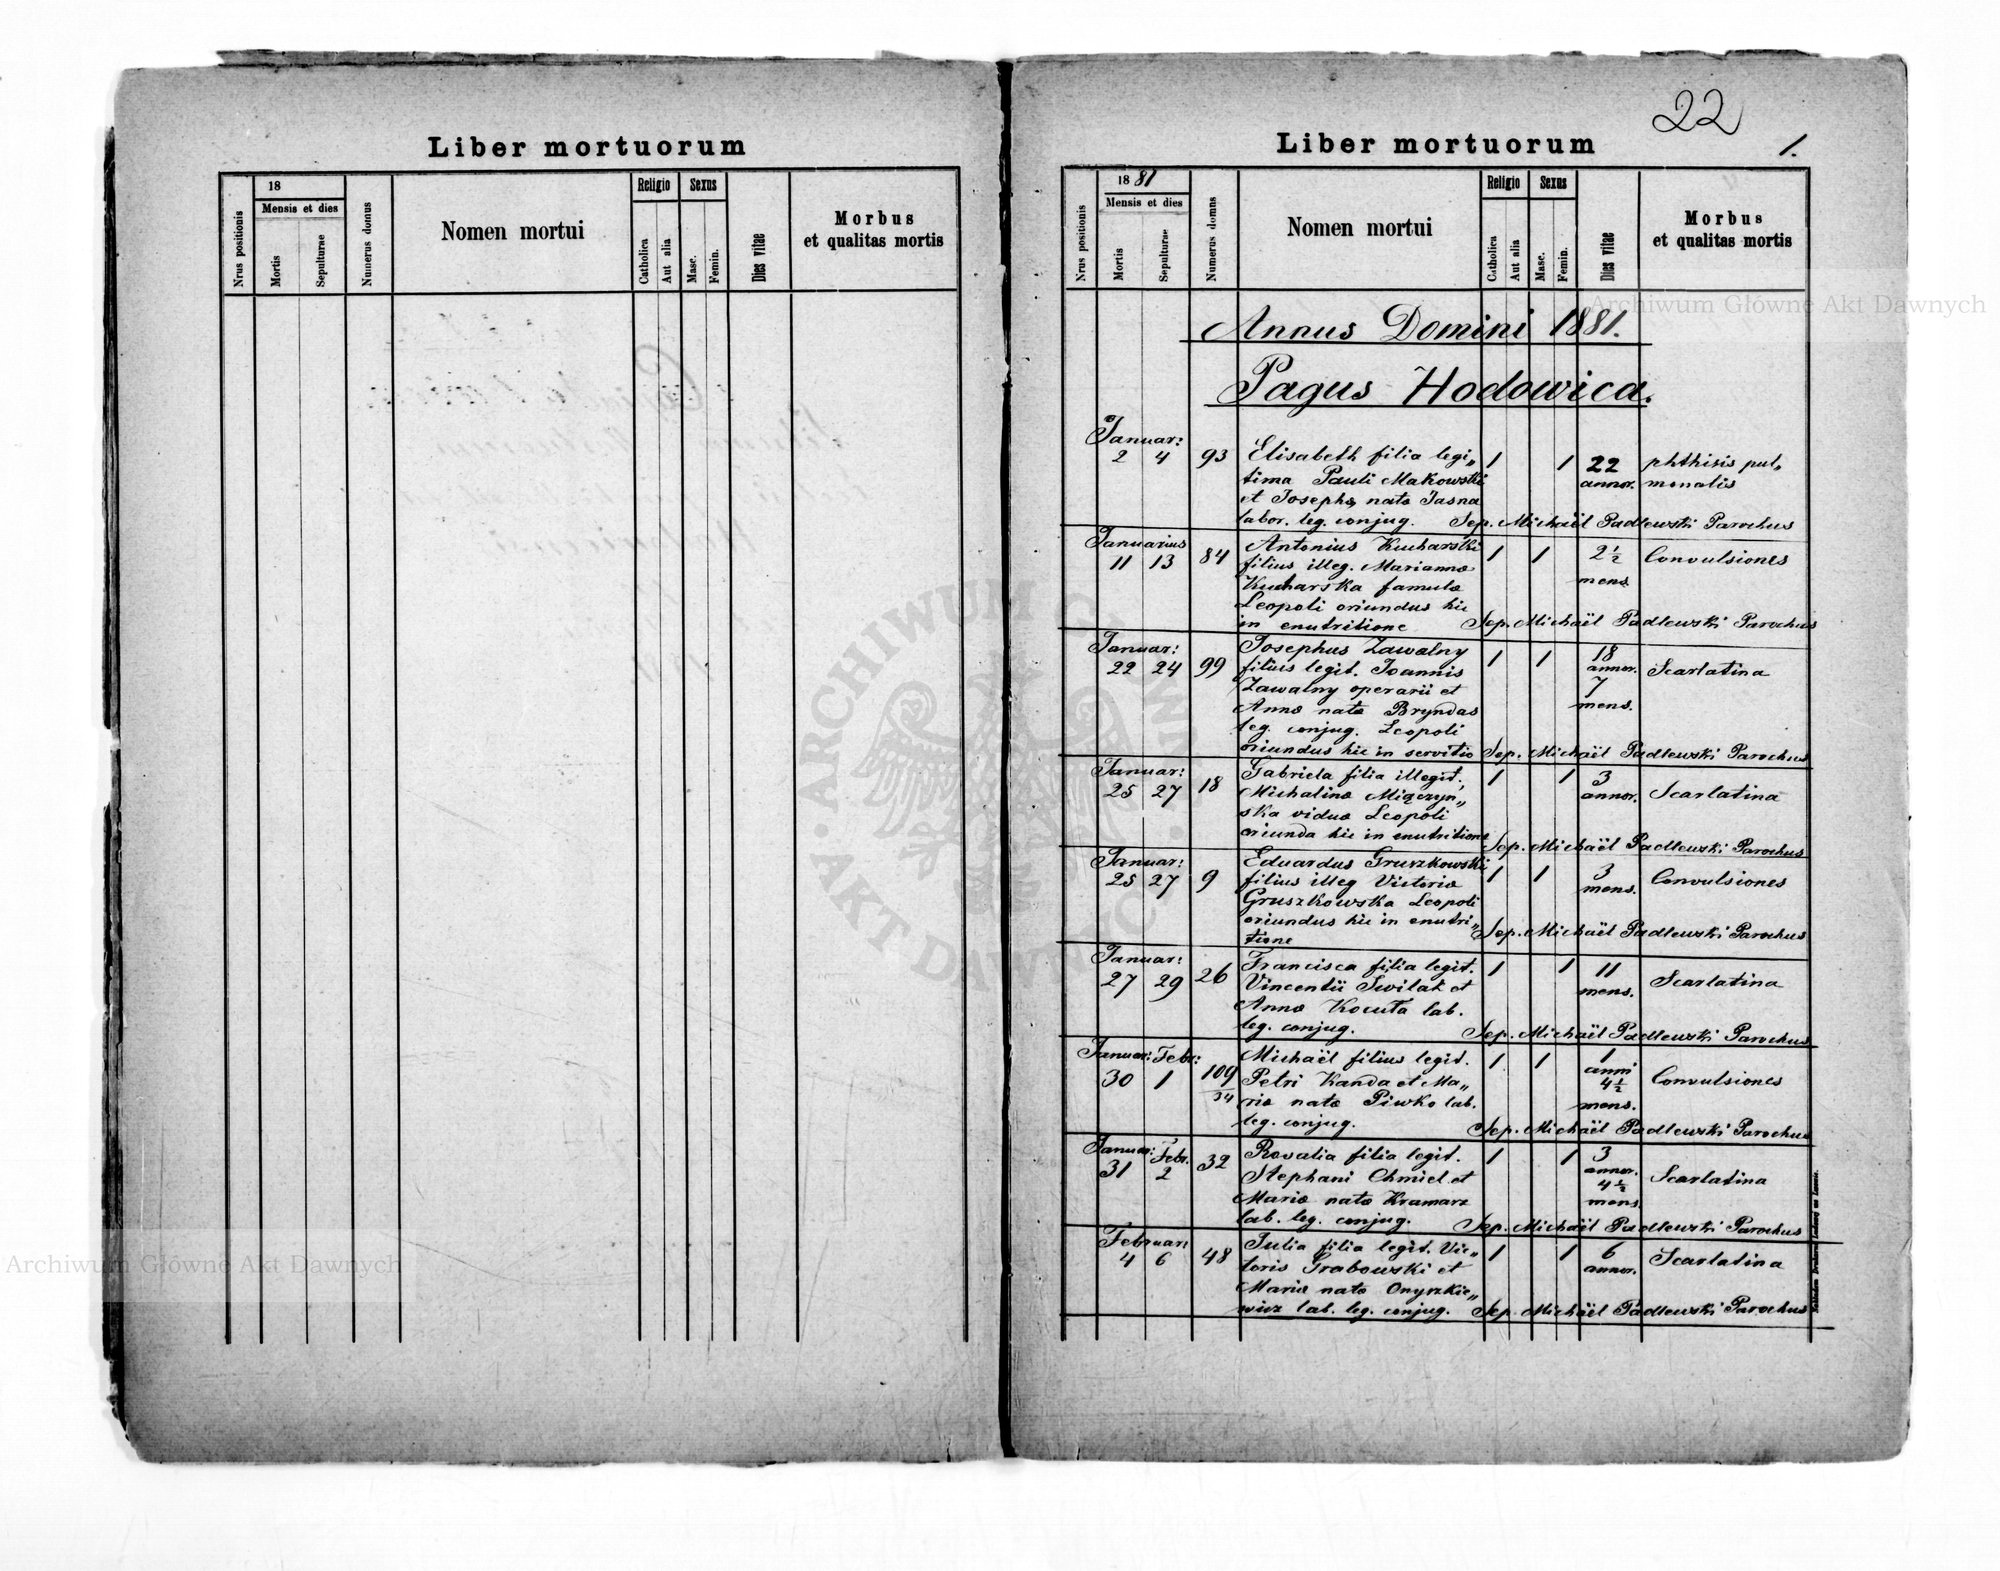 Liber mortuorum
Nrus positionis
18
Mensis et dies
Mortis
Sepulturae
Numerus domus
Nomen mortui
Religio
Catholica
Aut alia
Sexus
Masc.
Femin.
Dies vitae
Morbus
et qualitas mortis
22
Liber mortuorum
1.
Nrus positionis
1881
Mensis et dies
Mortis
Sepulturae
Numerus domus
Nomen mortui
Religio
Catholica
Aut alia
Sexus
Masc.
Femin.
Dies vitae
Morbus
et qualitas mortis
Annus Domini 1881.
Pagus Hodowica.
Januar:
2 4 93 Elisabeth filia legi„ 1 1 22 phthisis pul„
tima Pauli Makowski annor. monalis
et Josepha nata Jasna
labor. leg. conjug. Sep. Michaël Padlewski Parochus
Januarius
11 13 84 Antonius Kucharski 1 1 2 1/2 Convulsiones
filius illeg. Marianna mens.
Kucharska famula
Leopoli oriundus hic
in enutritione Sep. Michaël Padlewski Parochus
Januar:
22 24 99 Josephus Zawalny 1 1 18 Scarlatina
filius legit. Joannis annor.
Zawalny operarii et 7
Anna nata Bryndas mens.
leg. conjug. Leopoli
oriundus hic in servitio Sep. Michaël Padlewski Parochus
Januar:
25 27 18 Gabriela filia illegit. 1 1 3 Scarlatina
Michalina Miączyn„ annor.
ska vidua Leopoli
oriunda hic in enutritione Sep. Michaël Padlewski Parochus
Januar:
25 27 9 Eduardus Gruszkowski 1 1 3 Convulsiones
filius illeg Victoria mens.
Gruszkowska Leopoli
oriundus hic in enutri„
tione Sep. Michaël Padlewski Parochus
Januar:
27 29 26 Francisca filia legit. 1 1 11 Scarlatina
Vincentii Swilak et mens.
Anna Kocuła lab.
leg. conjug. Sep. Michaël Padlewski Parochus
Januar: Febr:
30 1 109/34 Michaël filius legit. 1 1 1 Convulsiones
Petri Kanda et Ma„ anni
ria nata Piwko lab. 4 1/2
leg. conjug. mens. Sep. Michaël Padlewski Parochus
Januar: Febr.
31 2 32 Rosalia filia legit. 1 1 3 Scarlatina
Stephani Chmiel et annor.
Maria nata Kramarz 4 1/2
lab. leg. conjug. mens. Sep. Michaël Padlewski Parochus
Februar:
4 6 48 Julia filia legit. Vic„ 1 1 6 Scarlatina
toris Grabowski et annor.
Maria nata Onyszkie„
wicz lab. leg. conjug. Sep. Michaël Padlewski Parochus
Archiwum Główne Akt Dawnych
Archiwum Główne Akt Dawnych
ARCHIWUM AKT DAWNYCH